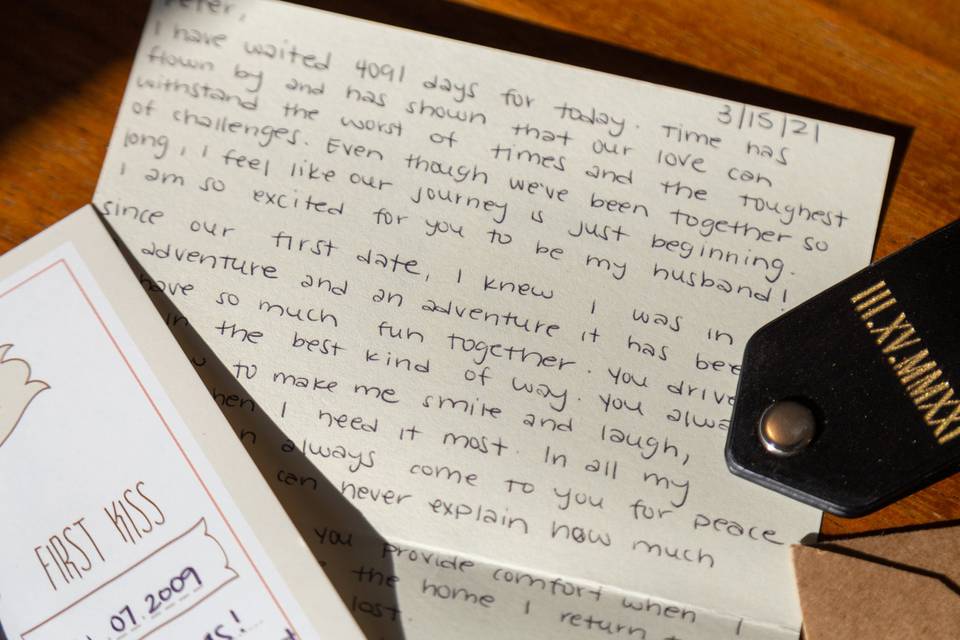 Peter,
3/15/21
I have waited 4091 days for today. Time has
flown by and has shown that our love can
withstand the worst of times and the toughest
of challenges. Even though we've been together so
long, I feel like our journey is just beginning.
I am so excited for you to be my husband!
since our first date, I knew I was in
adventure and an adventure it has
have so much fun together. you drive
in the best kind of way. you
to make me smile and laugh,
I need it most. In all my
always come to you for peace
can never explain how much
you provide comfort when I
the home I return
lost.
III.XV.MMXXI
FIRST KISS
07.2009